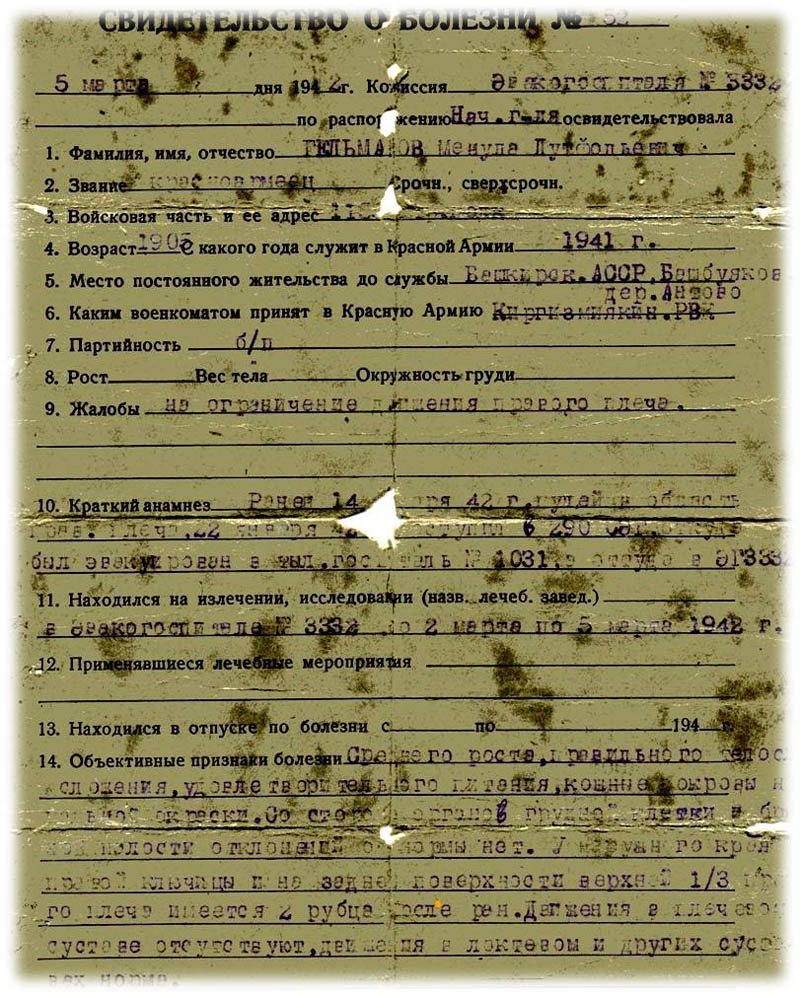 СВИДЕТЕЛЬСТВО О БОЛЕЗНИ № 52
5 марта дня 1942г. Комиссия Эвакогоспиталя № 3332
по распоряжению Нач. г-ля освидетельствовала
1. Фамилия, имя, отчество ГЕЛЬМАНОВ
2. Звание красноармеец Срочн., сверхсрочн.
3. Войсковая часть и ее адрес
4. Возраст 1905 С какого года служит в Красной Армии 1941 г.
5. Место постоянного жительства до службы Башкирск.АССР,
дер.
6. Каким военкоматом принят в Красную Армию РВК
7. Партийность б/п
8. Рост Вес тела Окружность груди
9. Жалобы на ограничение движения правого плеча.
10. Краткий анамнез Ранен 14 января 42 г. пулей в область
прав. плеча, 22 января поступил в 290
был эвакуирован в тыл, госпиталь № 1031, а оттуда в ЭГ3332
11. Находился на излечении, исследовании (назв. лечеб. завед.)
в Эвакогоспитале № 3332 со 2 марта по 5 марта 1942 г.
12. Применявшиеся лечебные мероприятия
13. Находился в отпуске по болезни с по 194 г.
14. Объективные признаки болезни Среднего роста, правильного телос
сложения, удовлетворительного питания, кожные покровы
окраски. Со стороны органов грудной клетки и
полости отклонений от нормы нет. У наружного края
правой ключицы и на задней поверхности верхней 1/3
го плеча имеется 2 рубца после ран. Движения в плечевом
суставе отсутствуют, движения в локтевом и других
вах норма.